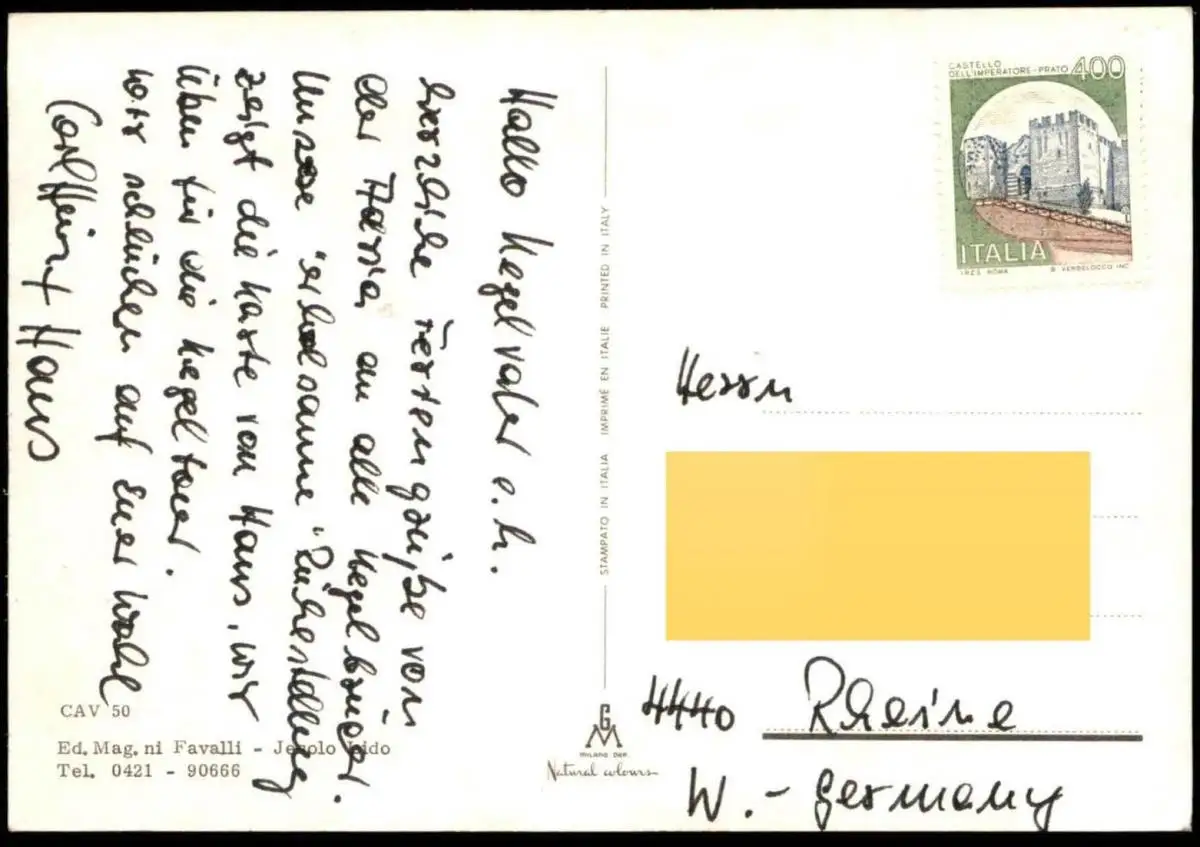 Hallo Kegelvater e.h.
herzliche Feriengrüße von
der Adria an alle Kegelbrüder.
Unsere "erholsame" Ruhestellung
zeigt die Karte von Haus, wir
üben für die Kegeltour.
Wir schlücken auf Euer Wohl
Carl Heinz + Hans
CAV 50
Ed. Mag. ni Favalli - Jesolo Lido
Tel. 0421 - 90666
STAMPATO IN ITALIA IMPRIMÉ EN ITALIE PRINTED IN ITALY
GM
MILANO DEP.
Natural colours
CASTELLO
DELL'IMPERATORE-PRATO 400
ITALIA
I.P.Z.S. ROMA
Herrn
4440 Rheine
W.-Germany